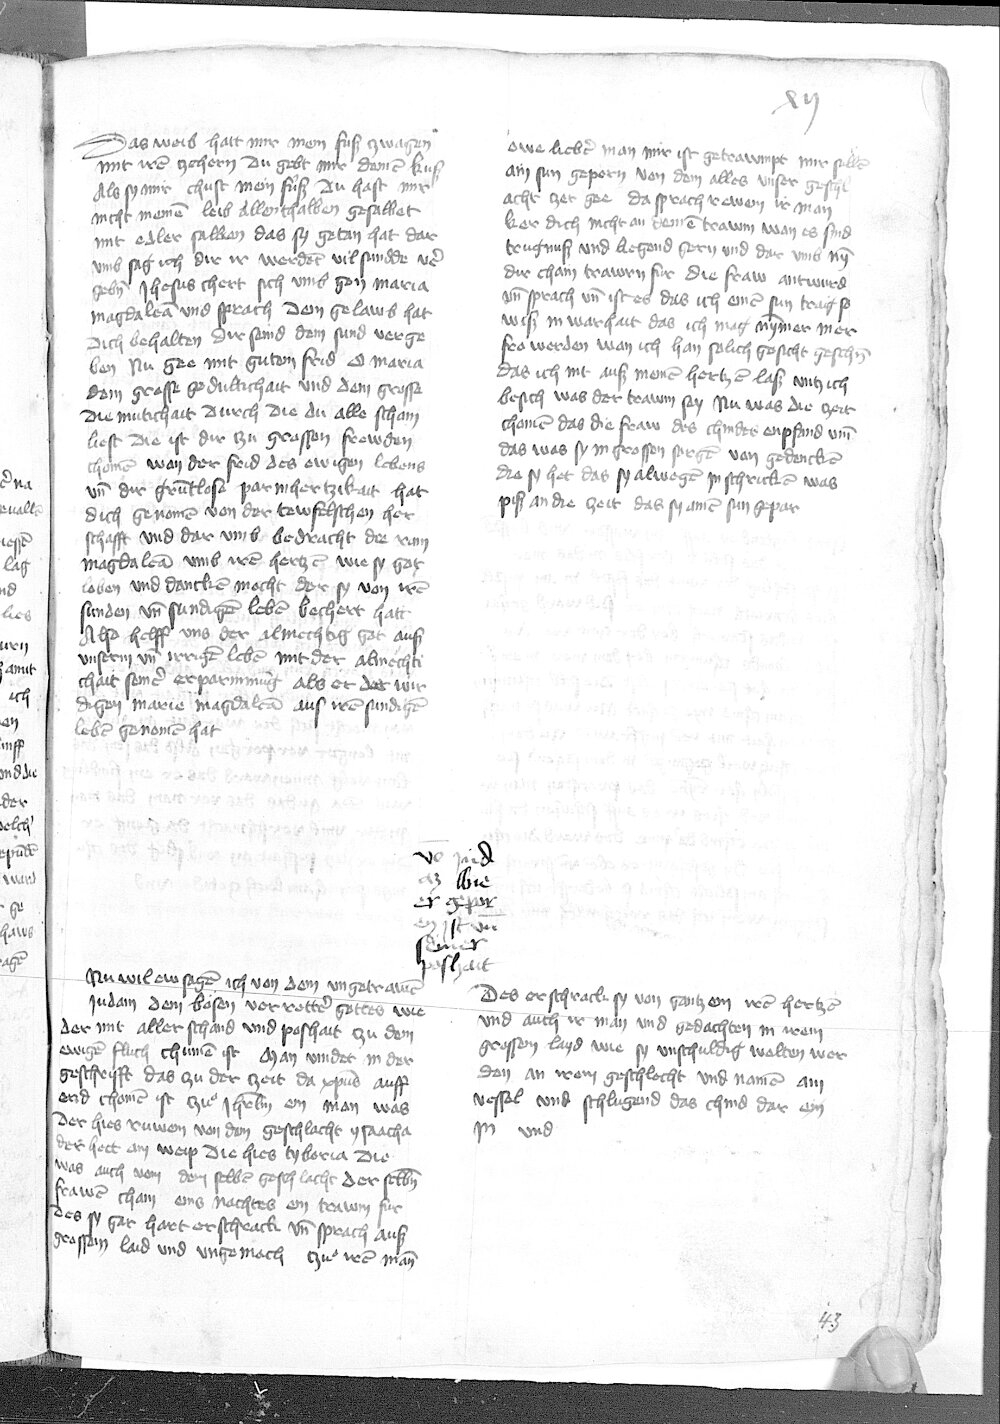 xij
Das weib hatt mir mein fuß zwagen
mit irē zehern Du gebt mir deinē kuß
Als sy mir chust mein fuß Du hast mir
nicht meinē leib Allenthalben gesalbet
mit edler salben das sy getan hat dar
umb sag ich dir ir werdēt vil sundde v̄er
gebn̄ Jhesus chert sich umb gen maria
magdaleā und sprach Dein gelaub hat
dich behalten dir seind dein sund verge
ben Nu gee mit gutem frid O maria
dein grosse gedultichait und dein grosse
diemutichait durch die du alle scham
liest die ist dir tzu grossen frewden
chomē wan der frid des ewigen lebens
un̄ dir grūtlose parmhertzikait hat
dich genomē von der tewfelschen her
schafft und dar umb bedracht die rain
magdaleā umb irē hertzē wie sy got
loben und danckē mocht der sy von irē
sunden un̄ sundigē lebē bechert hatt
Also helff uns der almechtig got auß
unserm un̄ irrigē lebē mit der almechti
chait seinē erparmmūg als er der wir
digen marie magdaleā aus irē sundigē
lebē genomē hat
vō jud
az wie
er gepor
en ist un̄
seiner
poshait
Nu wil ew sagē ich von dem ungetrawē
judam dem bosen verretter gottes wie
der mit aller schand und poshait tzu dem
ewigē fluch chumē ist Man vindet in der
geschrifft das tzu der tzeit da xpūs auff
erid chomē ist tzue jhrlm ein man was
der hies ruwen von dem geschlacht ysaacha
der hett ain weip die hies tyboria die
was auch vom dem selbē geschlacht der selbn̄
frawē cham eins nachtes ein trawm für
des sy gar hart erschrack un̄ sprach auß
grossem laid und ungemach tzue irē man̄
owe liebē man mir ist getrawmpt mir sollē
ain sun gepern von dem alles unser geschl
acht tzer gee da sprach rewen ir man
ker dich nicht an deinē trawm wan es sind
trugnuß und liegend gern und dar umb nȳ
dir cham trawrn fur die fraw antwurd
un̄ sprach un̄ ist es das ich einē sun trag so
wiß in warhait das ich mag nȳmer mer
fro werden wan ich han solich gesicht geschn̄
das ich nit auß meinē hertzē laß untz ich
besich was der trawm sey Nu was die tzeit
chomē das die fraw des chindes enpfand un̄
das was sy in grossen sorgē von gedenckē
die sy het das sy alwegē in schrickē was
piß an die tzeit das sy ainē sun gepar
Des erschrack sy von gantzem irē hertzē
und auch ir man und gedachten in irem
grossem layd wie sy unschuldig wolten wer
den an irem geschlecht und namē ain
vessel und schlugend das chind dar ein
in und
43